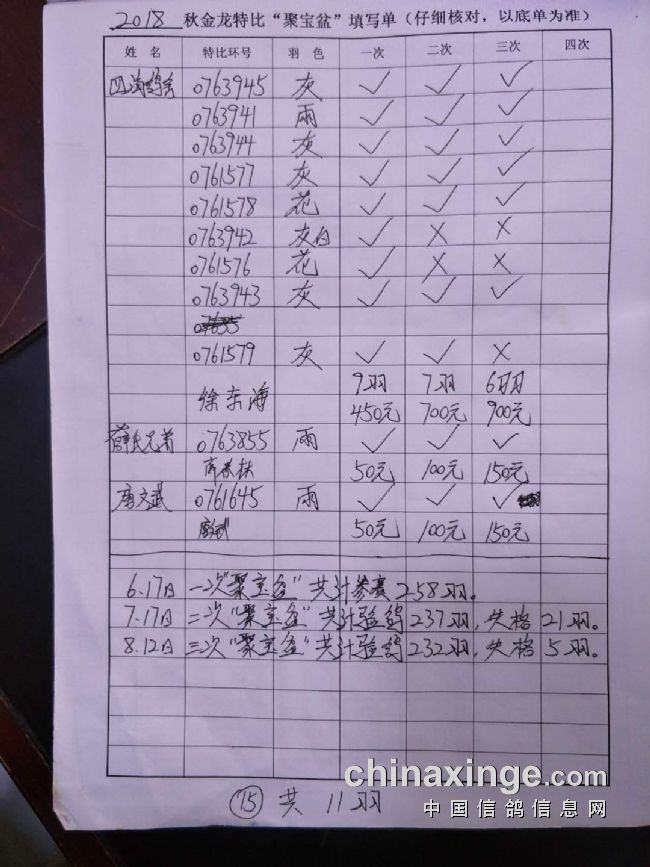 2018 秋金龙特比“聚宝盆”填写单（仔细核对，以底单为准）
姓 名 特比环号 羽 色 一次 二次 三次 四次
0763945 灰 ✓ ✓ ✓
0763941 雨 ✓ ✓ ✓
0763944 灰 ✓ ✓ ✓
0761577 灰 ✓ ✓ ✓
0761578 花 ✓ ✓ ✓
0763942 灰白 ✓ X X
0761576 花 ✓ X X
0763943 灰 ✓ ✓ ✓
0761579 灰 ✓ ✓ X
徐东海 9羽 7羽 6羽
450元 700元 900元
薛氏兄弟 0763855 雨 ✓ ✓ ✓
50元 100元 150元
唐文武 0761645 雨 ✓ ✓ ✓
50元 100元 150元
6.17日 一次“聚宝盆”共计参赛258羽。
7.17日 二次“聚宝盆”共计验鸽237羽，失格21羽。
8.12日 三次“聚宝盆”共计验鸽232羽，失格5羽。
chinaxinge.com
⑮ 共 11羽
中国信鸽信息网